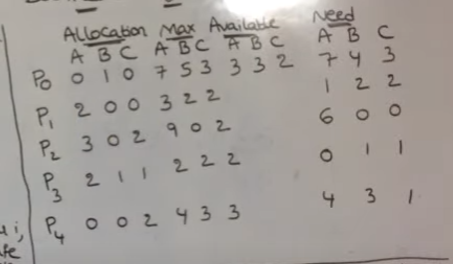 Allocation Max Available Need
A B C A B C A B C A B C
P0 0 1 0 7 5 3 3 3 2 7 4 3
P1 2 0 0 3 2 2 1 2 2
P2 3 0 2 9 0 2 6 0 0
P3 2 1 1 2 2 2 0 1 1
P4 0 0 2 4 3 3 4 3 1